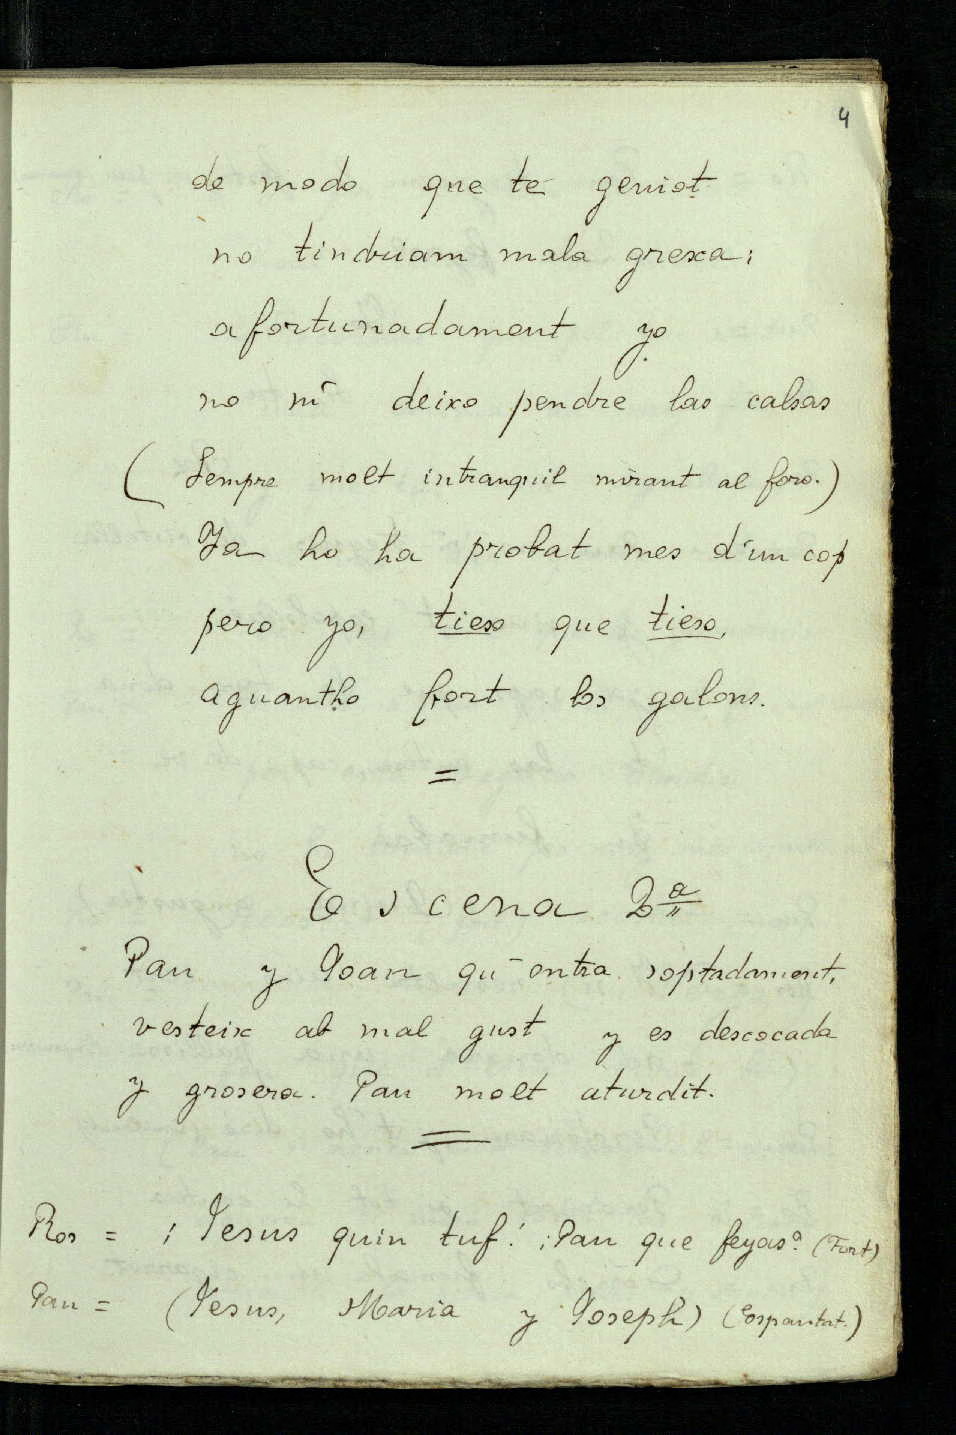 4
de modo que te geniot
no tindriam mala grexa;
afortunadament yo
no m' deixo pendre las calsas
(Sempre molt intranquil mirant al foro.)
Ja ho ha probat mes d'un cop
pero yo, tieso que tieso,
aguantho fort los galons.
=
Escena 2ª
Pau y Joan qu' entra soptadament,
vesteix ab mal gust y es descocada
y grosera. Pau molt aturdit.
=
Ros = ¡Jesus quin tuf! ¡Pau que feyas? (Fort)
Pau = (Jesus, Maria y Joseph) (Espantat.)